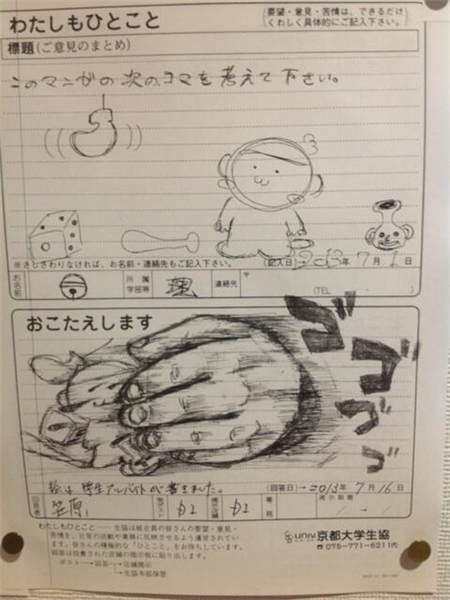 わたしもひとこと
(要望・意見・苦情は、できるだけ
くわしく具体的にご記入下さい。)
標題(ご意見のまとめ)
このマンガの次のコマを考えて下さい。
※さしさわりなければ、お名前・連絡先もご記入下さい。
(記入日) 2013年 7月 1日
お名前
所属
学部等
理
連絡先
〒
(TEL - )
おこたえします
ゴゴゴゴ
絵は学生アルバイトが書きました。
(回答日)→2013年 7月 16日
回答者
笠原
わたしもひとこと――生協は組合員の皆さんの要望・意見・
苦情を、日常の活動や業務に反映させるよう運営されてい
ます。皆さんの積極的な「ひとこと」をお待ちしています。
回答は投書された店舗の掲示板に貼り出します。
ポスト→回答→店舗掲示
→生協本部保管
univ 京都大学生協
☎ 075-771-6211㈹